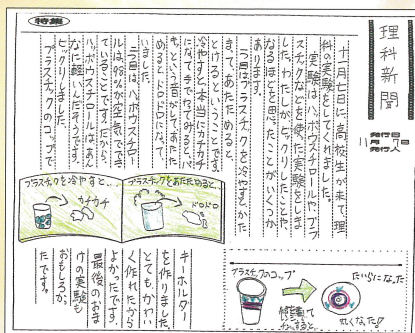 特集
理科新聞
発行日
11月7日
発行人
十一月七日に、高校生が来て理
科の実験をしてくれました。
実験は、ハッポウスチロールやプラ
スチックなどを使った実験をしま
した。わたしが、ビックリしたことや、
なるほどと思ったことがいくつか
あります。
一つ目はプラスチックを冷やすとかた
まって、あたためると、
とけるということです。
冷やすと、本当にカチカチ
になって手でわってみると「バ
キッ」という音がして、あたた
めるとドロドロになって
いました。
二つ目は、ハッポウスチロー
ルは、98%が空気ででき
ていることです。だから
ハッポウスチロールはあん
なに軽いんだそうです。
ビックリしました。
プラスチックのコップで
プラスチックをあたためると、
ドロドロ
プラスチックを冷やすと…
カチカチ
キーホルダー
を作りました。
とてもかわい
く作れたから
よかったです。
最後のおま
けの実験も
おもしろか
たです。
プラスチックのコップ
たいらになった
丸くなった!